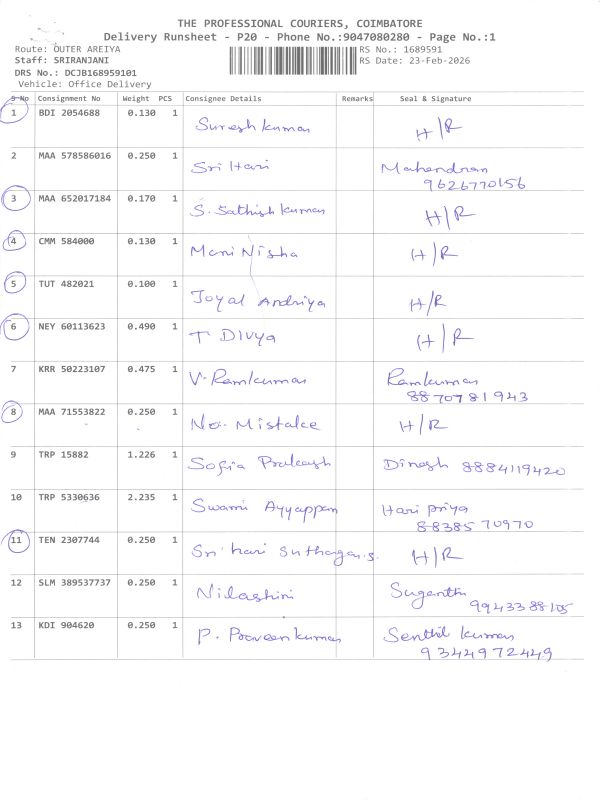 THE PROFESSIONAL COURIERS, COIMBATORE
Delivery Runsheet - P20 - Phone No.:9047080280 - Page No.:1
Route: OUTER AREIYA RS No.: 1689591
Staff: SRIRANJANI RS Date: 23-Feb-2026
DRS No.: DCJB168959101
Vehicle: Office Delivery
S No Consignment No Weight PCS Consignee Details Remarks Seal & Signature
1 BDI 2054688 0.130 1 Suresh kumar H/R
2 MAA 578586016 0.250 1 Sri Hari Mahendran
9626770156
3 MAA 652017184 0.170 1 S. Sathish kumar H/R
4 CMM 584000 0.130 1 Mani Nisha H/R
5 TUT 482021 0.100 1 Joyal Andriya H/R
6 NEY 60113623 0.490 1 T Divya H/R
7 KRR 50223107 0.475 1 V. Ramkumar Ramkumar
8870781943
8 MAA 71553822 0.250 1 No. Mistake H/R
9 TRP 15882 1.226 1 Sofia Prakash Dinesh 8884119420
10 TRP 5330636 2.235 1 Swami Ayyappan Hari priya
8838570970
11 TEN 2307744 0.250 1 Sri hari H/R
12 SLM 389537737 0.250 1 Nilashini Suganthi
9943388105
13 KDI 904620 0.250 1 P. Praveen kumar Senthil kumar
9344972449